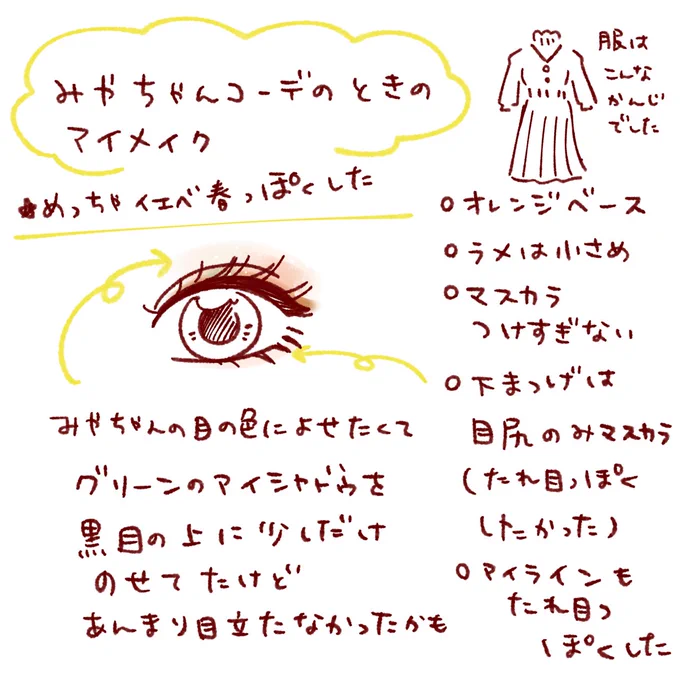 みやちゃんコーデのときの
アイメイク
★めっちゃイエベ春っぽくした
服は
こんな
かんじ
でした
○オレンジベース
○ラメは小さめ
○マスカラ
つけすぎない
○下まつげは
目尻のみマスカラ
(たれ目っぽく
したかった)
○アイラインも
たれ目っ
ぽくした
みやちゃんの目の色によせたくて
グリーンのアイシャドウを
黒目の上に少しだけ
のせてたけど
あんまり目立たなかったかも